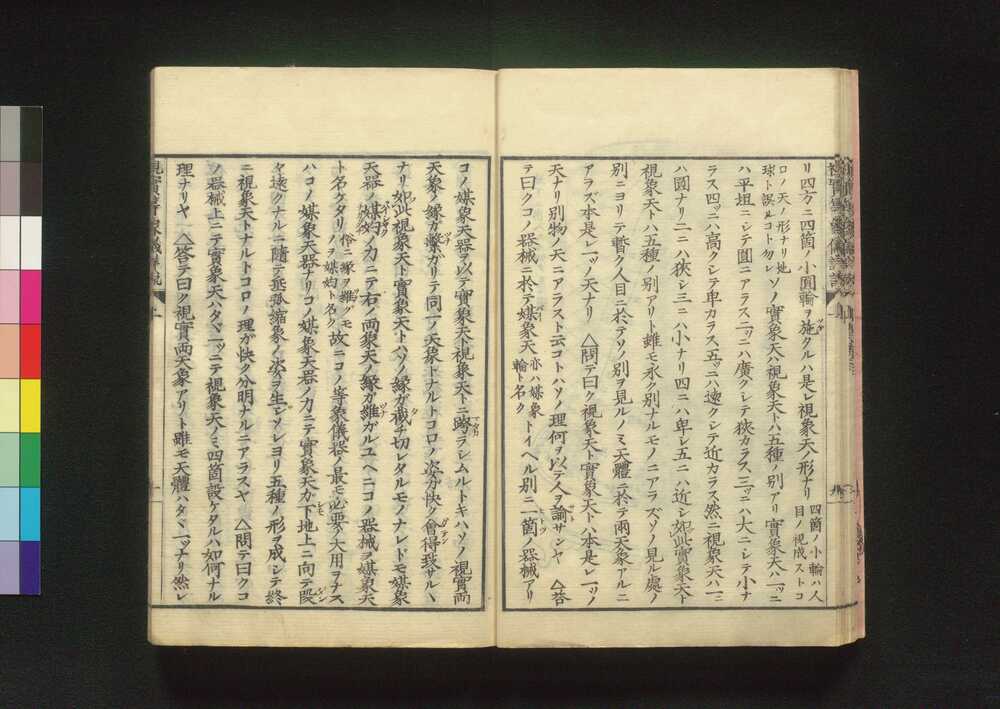 リ四方ニ四箇ノ小圓輪ヲ施クルハ是レ視象天ノ形ナリ 四箇ノ小輪ハ人目ノ視成ストコ
ロノ天ノ形ナリ地球ト誤ルコト勿レ ソノ實象天ハ視象天トハ五種ノ別アリ 實象天ハ一ツニ
ハ平坦ニシテ圓ニアラス二ツニハ廣クシテ狹カラス三ツニハ大ニシテ小ナ
ラス四ツニハ高クシテ卑カラス五ツニハ遠クシテ近カラス然ニ視象天ハ一ニ
ハ圓ナリ二ニハ狹シ三ニハ小ナリ四ニハ卑シ五ニハ近シ如此實象天ト
視象天トハ五種ノ別アリト雖モ永ク別ナルモノニアラズソノ見ル處ノ
別ニヨリテ暫ク人目ニ於テソノ別ヲ見ルノミ天體ニ於テ兩天象アルニ
アラズ本是レ一ツノ天ナリ △問テ曰ク視象天ト實象天トハ本是レ一ツノ
天ナリ別物ノ天ニアラスト云コトハソノ理何ヲ以テ人ヲ諭サンヤ △答
テ曰クコノ器械ニ於テ媒象天 亦ハ媒象輪ト名ク トイヘル別ニ一箇ノ器械アリ
コノ媒象天器ヲ以テ實象天ト視象天トニ跨ラシムルトキハソノ視實兩
天象ノ縁ガ繋ガリテ同一ノ天象トナルトコロノ姿分快ク會得致サル丶
ナリ如此視象天ト實象天トハソノ縁ガ截チ切レタルモノナレドモ媒象
天器ノ媒妁ノ力ニテ右ノ両象天ノ縁ガ維ガルユヘニコノ器械ヲ媒象天
ト名ケタリ 俗ニ縁ヲ維グモノヲ媒妁ト名ク 故ニコノ等象儀器ノ最モ必要ノ大用ヲナス
ハコノ媒象天器ナリコノ媒象天器ノ力ニテ實象天カ下地上ニ向テ段
々遠クナルニ隨テ垂弧縮象ノ姿ヲ生シソレヨリ五種ノ形ヲ成シテ終
ニ視象天トナルトコロノ理ガ快ク分明ナルニアラスヤ △問テ曰クコ
ノ器械上ニテ實象天ハタ丶一ツニテ視象天ノミ四箇設ケタルハ如何ナル
理ナリヤ △答テ曰ク視實両天象アリト雖モ天體ハタ丶一ツナリ然レ